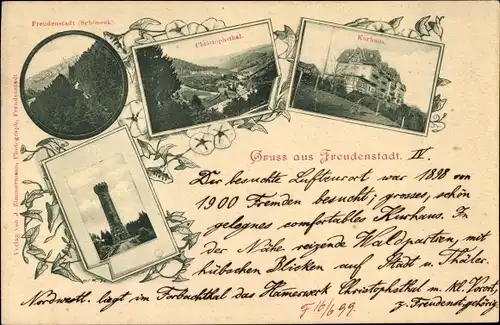 Freudenstadt (Schöneck)
Christophsthal.
Kurhaus.
Verlag von J. Zimmermann, Photograph, Freudenstadt.
Gruss aus Freudenstadt. IV.
Der besuchte Luftkurort war 1898 von
1900 Fremden besucht; grosses, schön
gelegnes comfortables Kurhaus. In
der Nähe reizende Waldpartien, mit
hübschen Blicken auf Stadt u. Thäler.
Nordwestl. liegt im Forbachthal das Hamerwerk Christophsthal m. kl. Vorort,
16/6 99. z. Freudenst. gehörig.